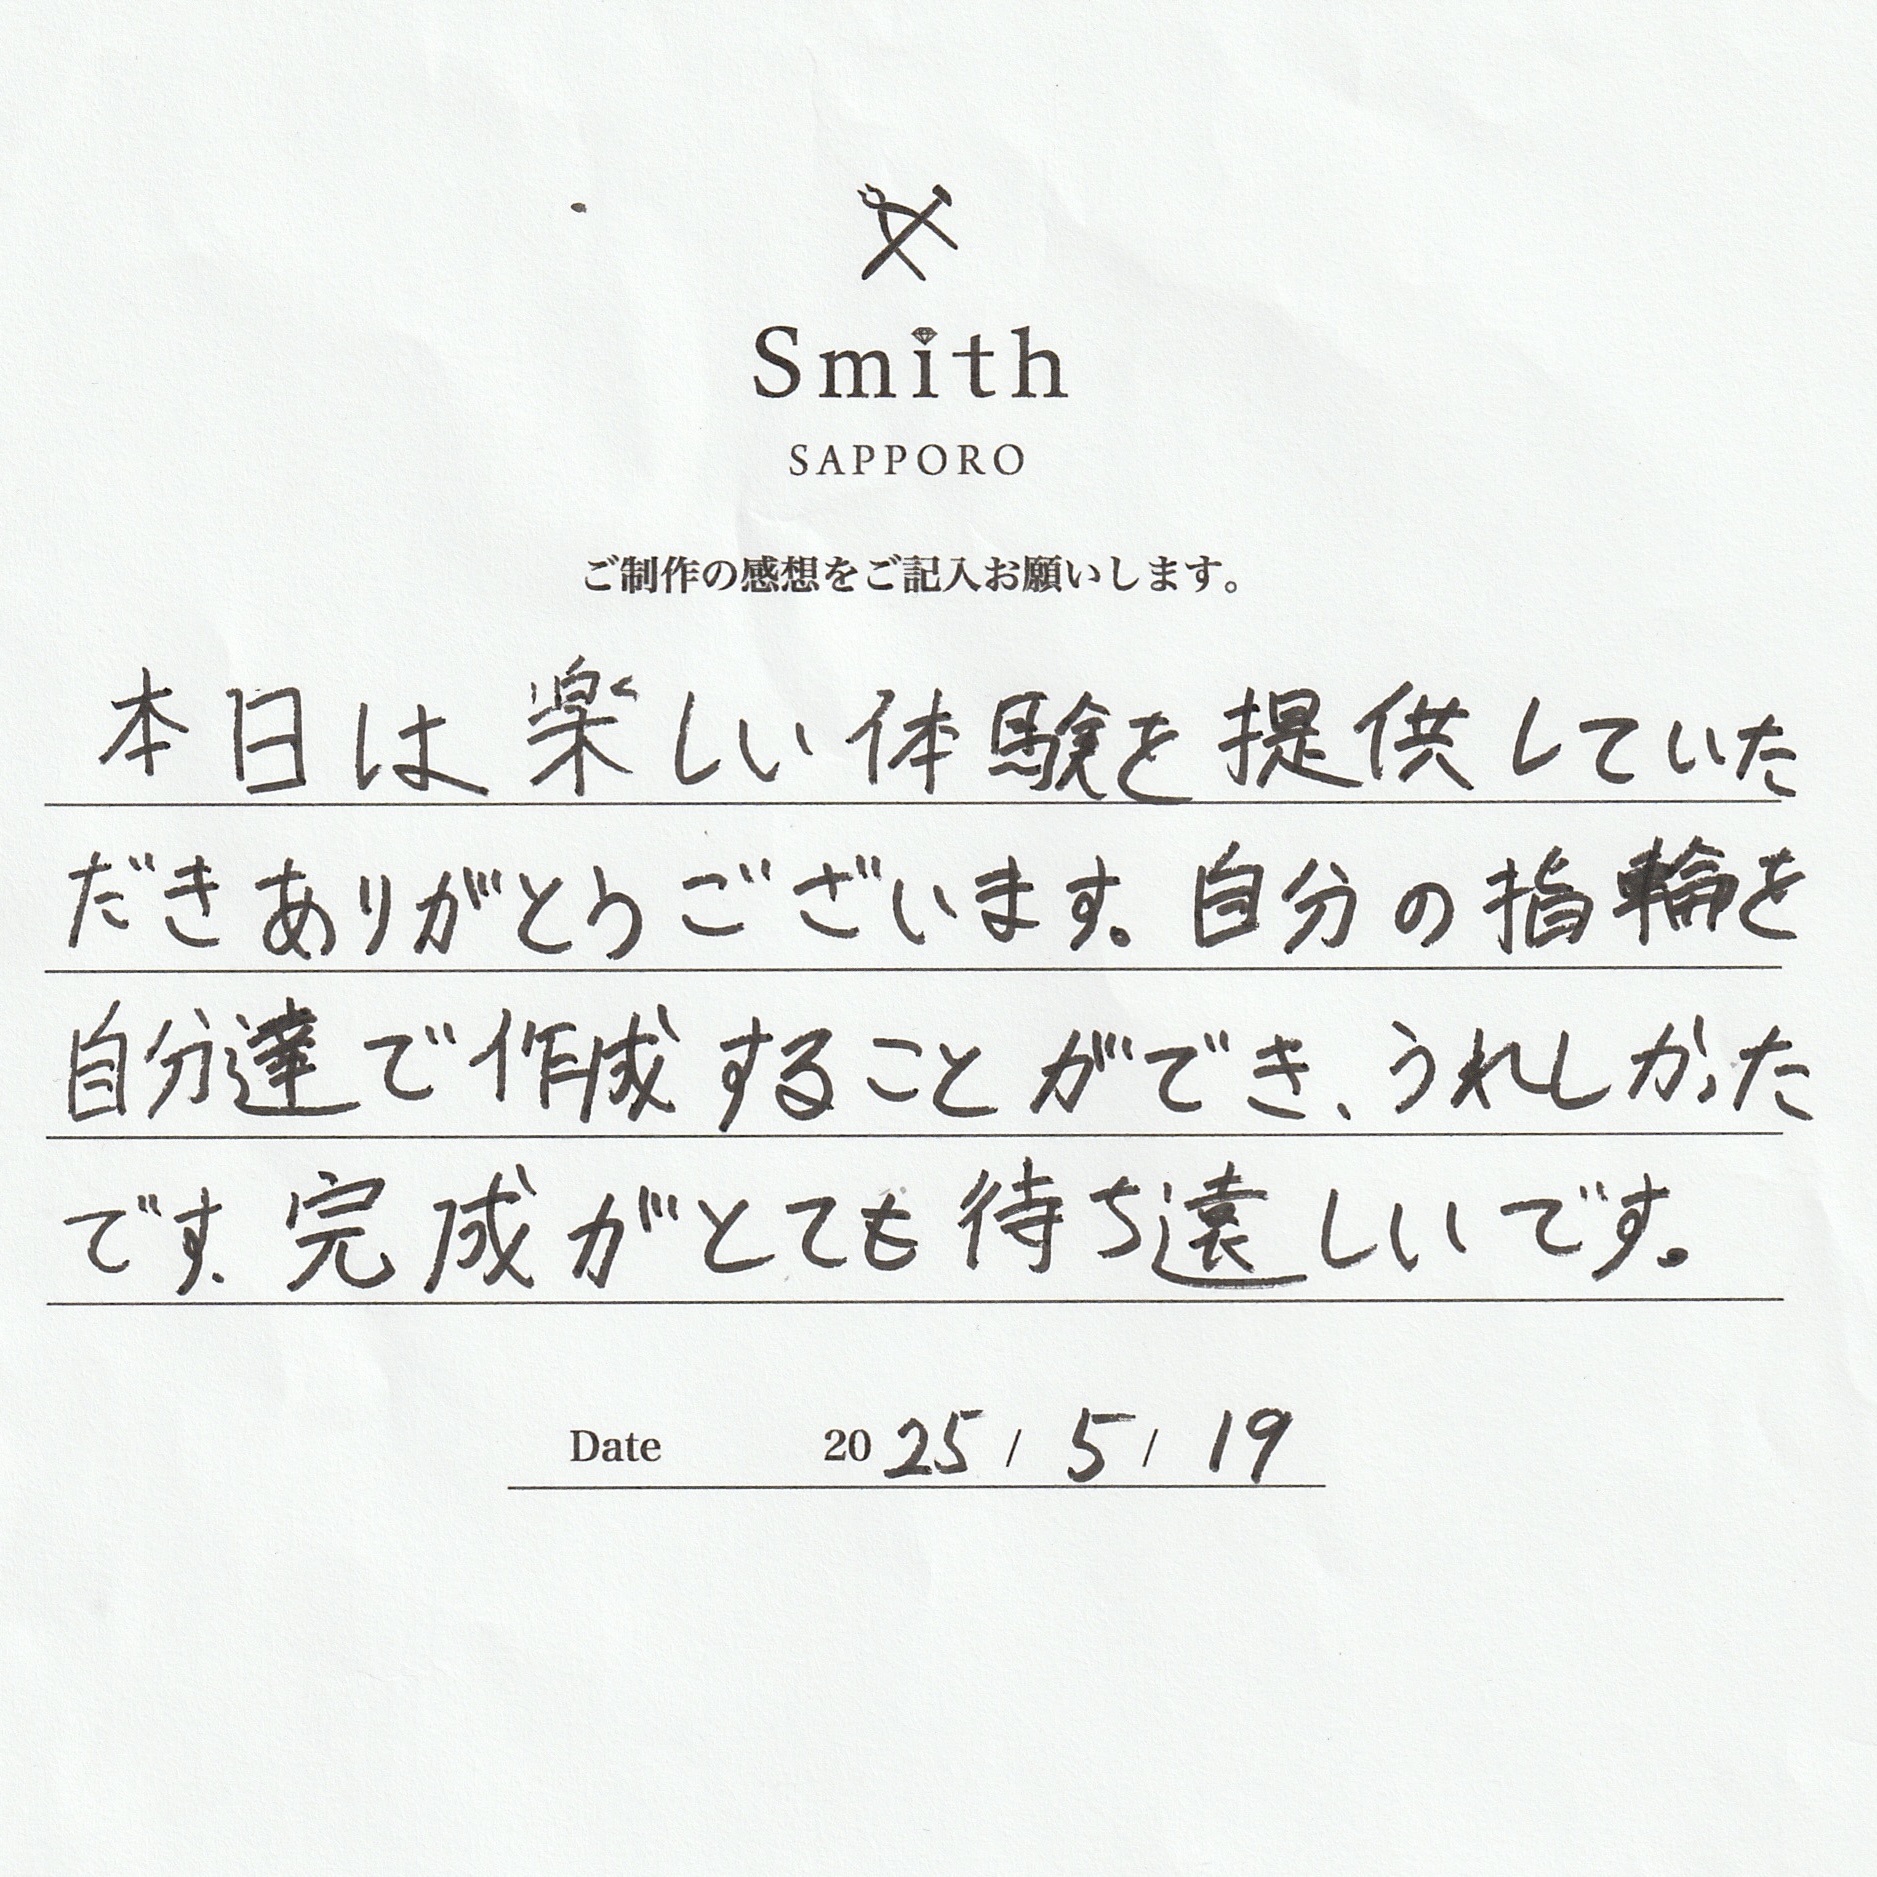 Smith
SAPPORO
ご制作の感想をご記入お願いします。
本日は楽しい体験を提供していた
だきありがとうございます。自分の指輪を
自分達で作成することができ、うれしかった
です、完成がとても待ち遠しいです。
Date 2025/5/19